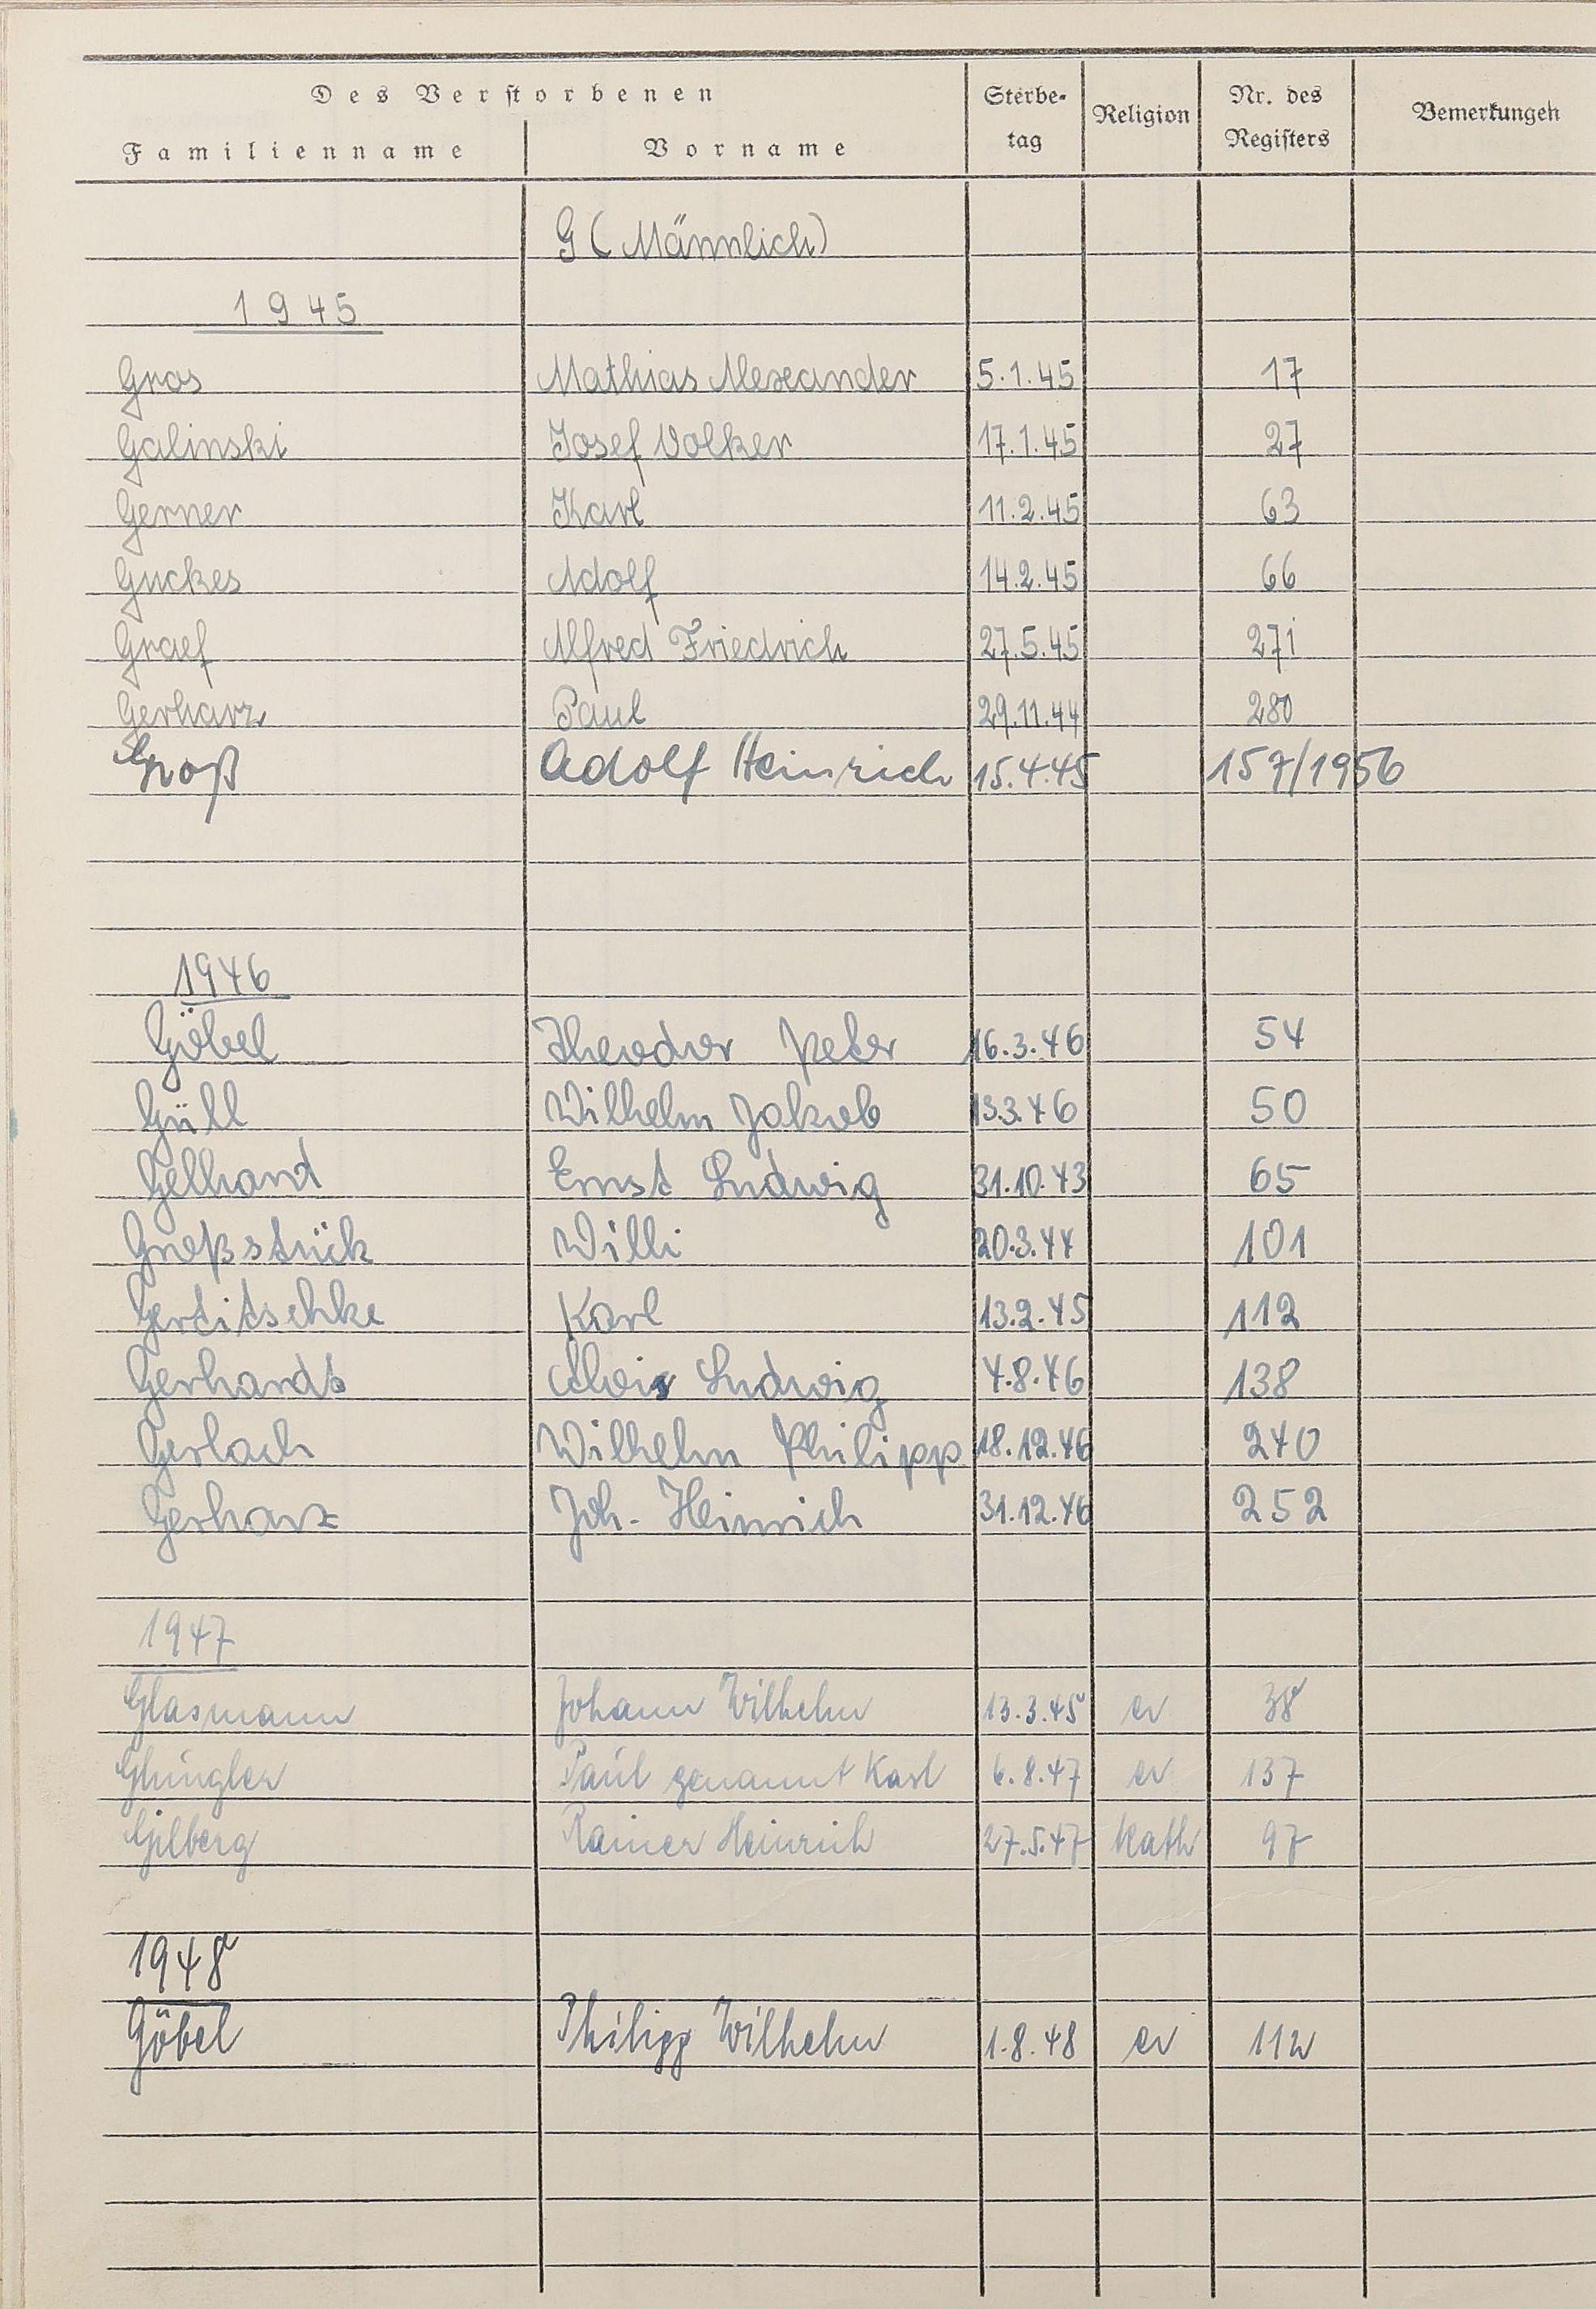 Des Verstorbenen
Familienname Vorname Sterbe-tag Religion Nr. des Registers Bemerkungen
G (Männlich)
1945
Gros Mathias Alexander 5.1.45 17
Galinski Josef Volker 17.1.45 27
Gerner Karl 11.2.45 63
Guckes Adolf 14.2.45 66
Graef Alfred Friedrich 27.5.45 271
Gerharz Paul 29.11.44 280
Groß Adolf Heinrich 15.4.45 157/1956
1946
Göbel Theodor Peter 16.3.46 54
Güll Wilhelm Jakob 13.3.46 50
Gelhard Ernst Ludwig 31.10.43 65
Großstück Willi 20.3.44 101
Gertitschke Karl 13.2.45 112
Gerhards Alois Ludwig 4.8.46 138
Gerlach Wilhelm Philipp 18.12.46 240
Gerharz Joh. Heinrich 31.12.46 252
1947
Glasmann Johann Wilhelm 13.3.45 ev 38
Paul genannt Karl 6.8.47 ev 137
Gilberg Rainer Heinrich 27.5.47 Kath 97
1948
Göbel Philipp Wilhelm 1.8.48 ev 112